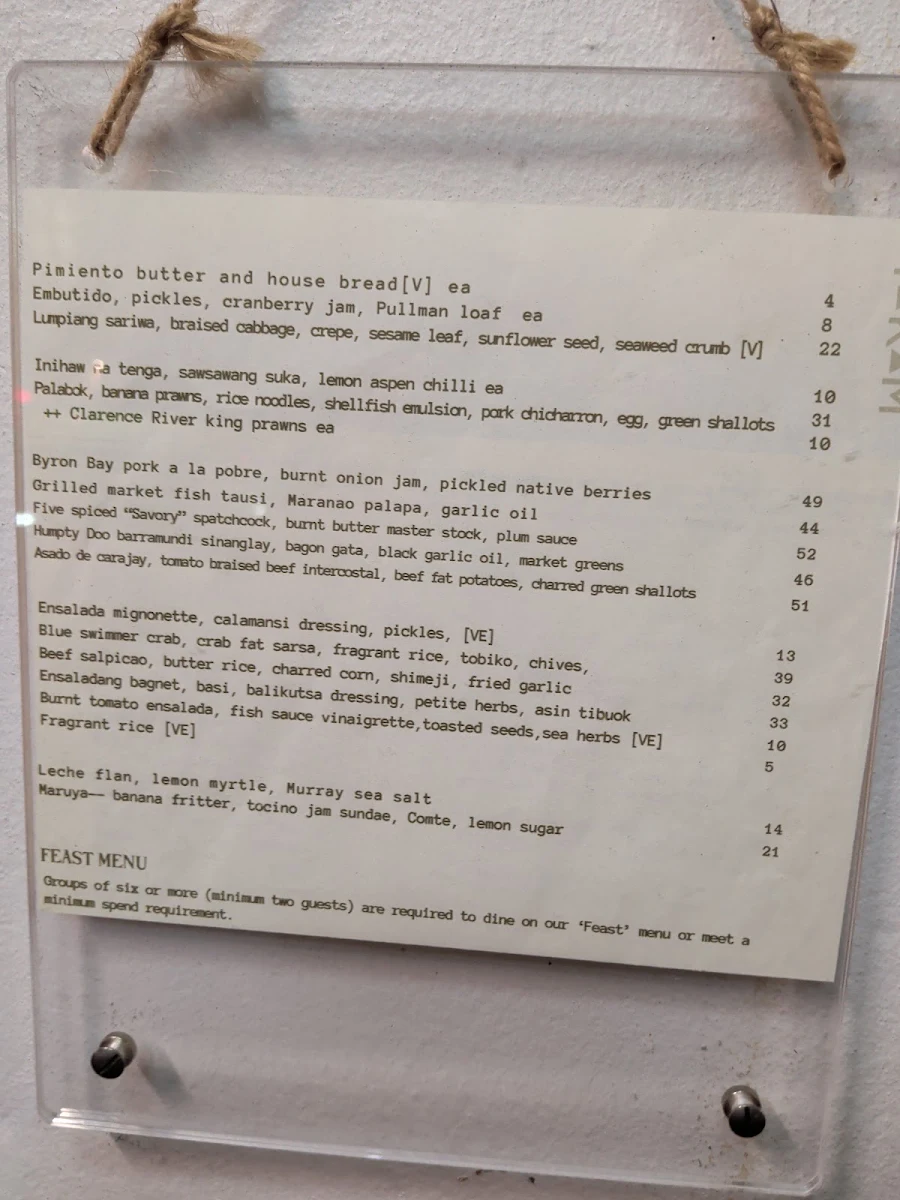 Pimiento butter and house bread[V] ea 4
Embutido, pickles, cranberry jam, Pullman loaf ea 8
Lumpiang sariwa, braised cabbage, crepe, sesame leaf, sunflower seed, seaweed crumb [V] 22
Inihaw na tenga, sawsawang suka, lemon aspen chilli ea 10
Palabok, banana prawns, rice noodles, shellfish emulsion, pork chicharron, egg, green shallots 31
++ Clarence River king prawns ea 10
Byron Bay pork a la pobre, burnt onion jam, pickled native berries 49
Grilled market fish tausi, Maranao palapa, garlic oil 44
Five spiced “Savory” spatchcock, burnt butter master stock, plum sauce 52
Humpty Doo barramundi sinanglay, bagon gata, black garlic oil, market greens 46
Asado de carajay, tomato braised beef intercostal, beef fat potatoes, charred green shallots 51
Ensalada mignonette, calamansi dressing, pickles, [VE] 13
Blue swimmer crab, crab fat sarsa, fragrant rice, tobiko, chives, 39
Beef salpicao, butter rice, charred corn, shimeji, fried garlic 32
Ensaladang bagnet, basi, balikutsa dressing, petite herbs, asin tibuok 33
Burnt tomato ensalada, fish sauce vinaigrette,toasted seeds,sea herbs [VE] 10
Fragrant rice [VE] 5
Leche flan, lemon myrtle, Murray sea salt 14
Maruya—— banana fritter, tocino jam sundae, Comte, lemon sugar 21
FEAST MENU
Groups of six or more (minimum two guests) are required to dine on our ‘Feast’ menu or meet a
minimum spend requirement.